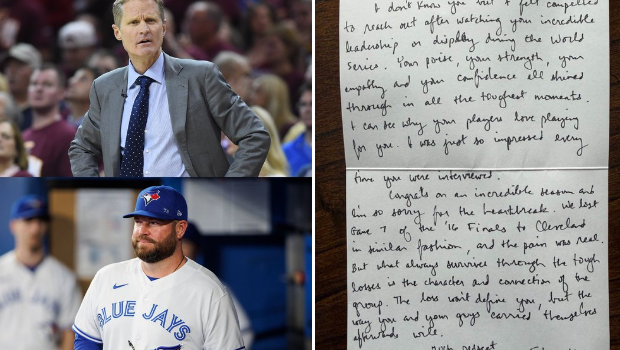 BLUE JAYS
I don't know you but I felt compelled
to reach out after watching your incredible
leadership on display during the World
Series. Your poise, your strength, your
empathy and your confidence all shined
through in all the toughest moments.
I can see why your players love playing
for you. I was just so impressed every
time you were interviewed.
Congrats on an incredible season and
I'm so sorry for the heartbreak. We lost
Game 7 of the '16 Finals to Cleveland
in similar fashion, and the pain was real.
But what always survives through the tough
losses is the character and connection of the
group. The loss won't define you, but the
way you and your guys carried themselves
afterwards will.
With respect